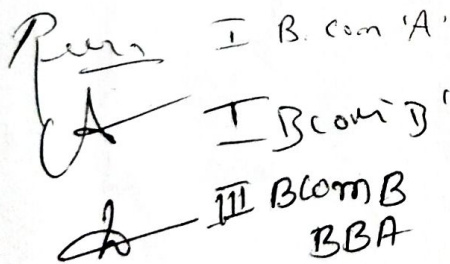 I B. com 'A'
I Bcom 'B'
III BCOM B
BBA